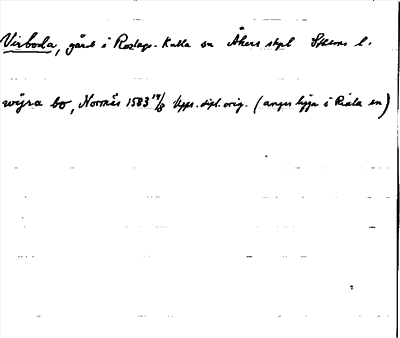 Virboda, gård i Roslags-Kulla sn Åkers skpl Sthlms l.
wijra bo, Norrnäs 1583 14/8 Upps. dipl. orig. (anges ligga i Riala sn)